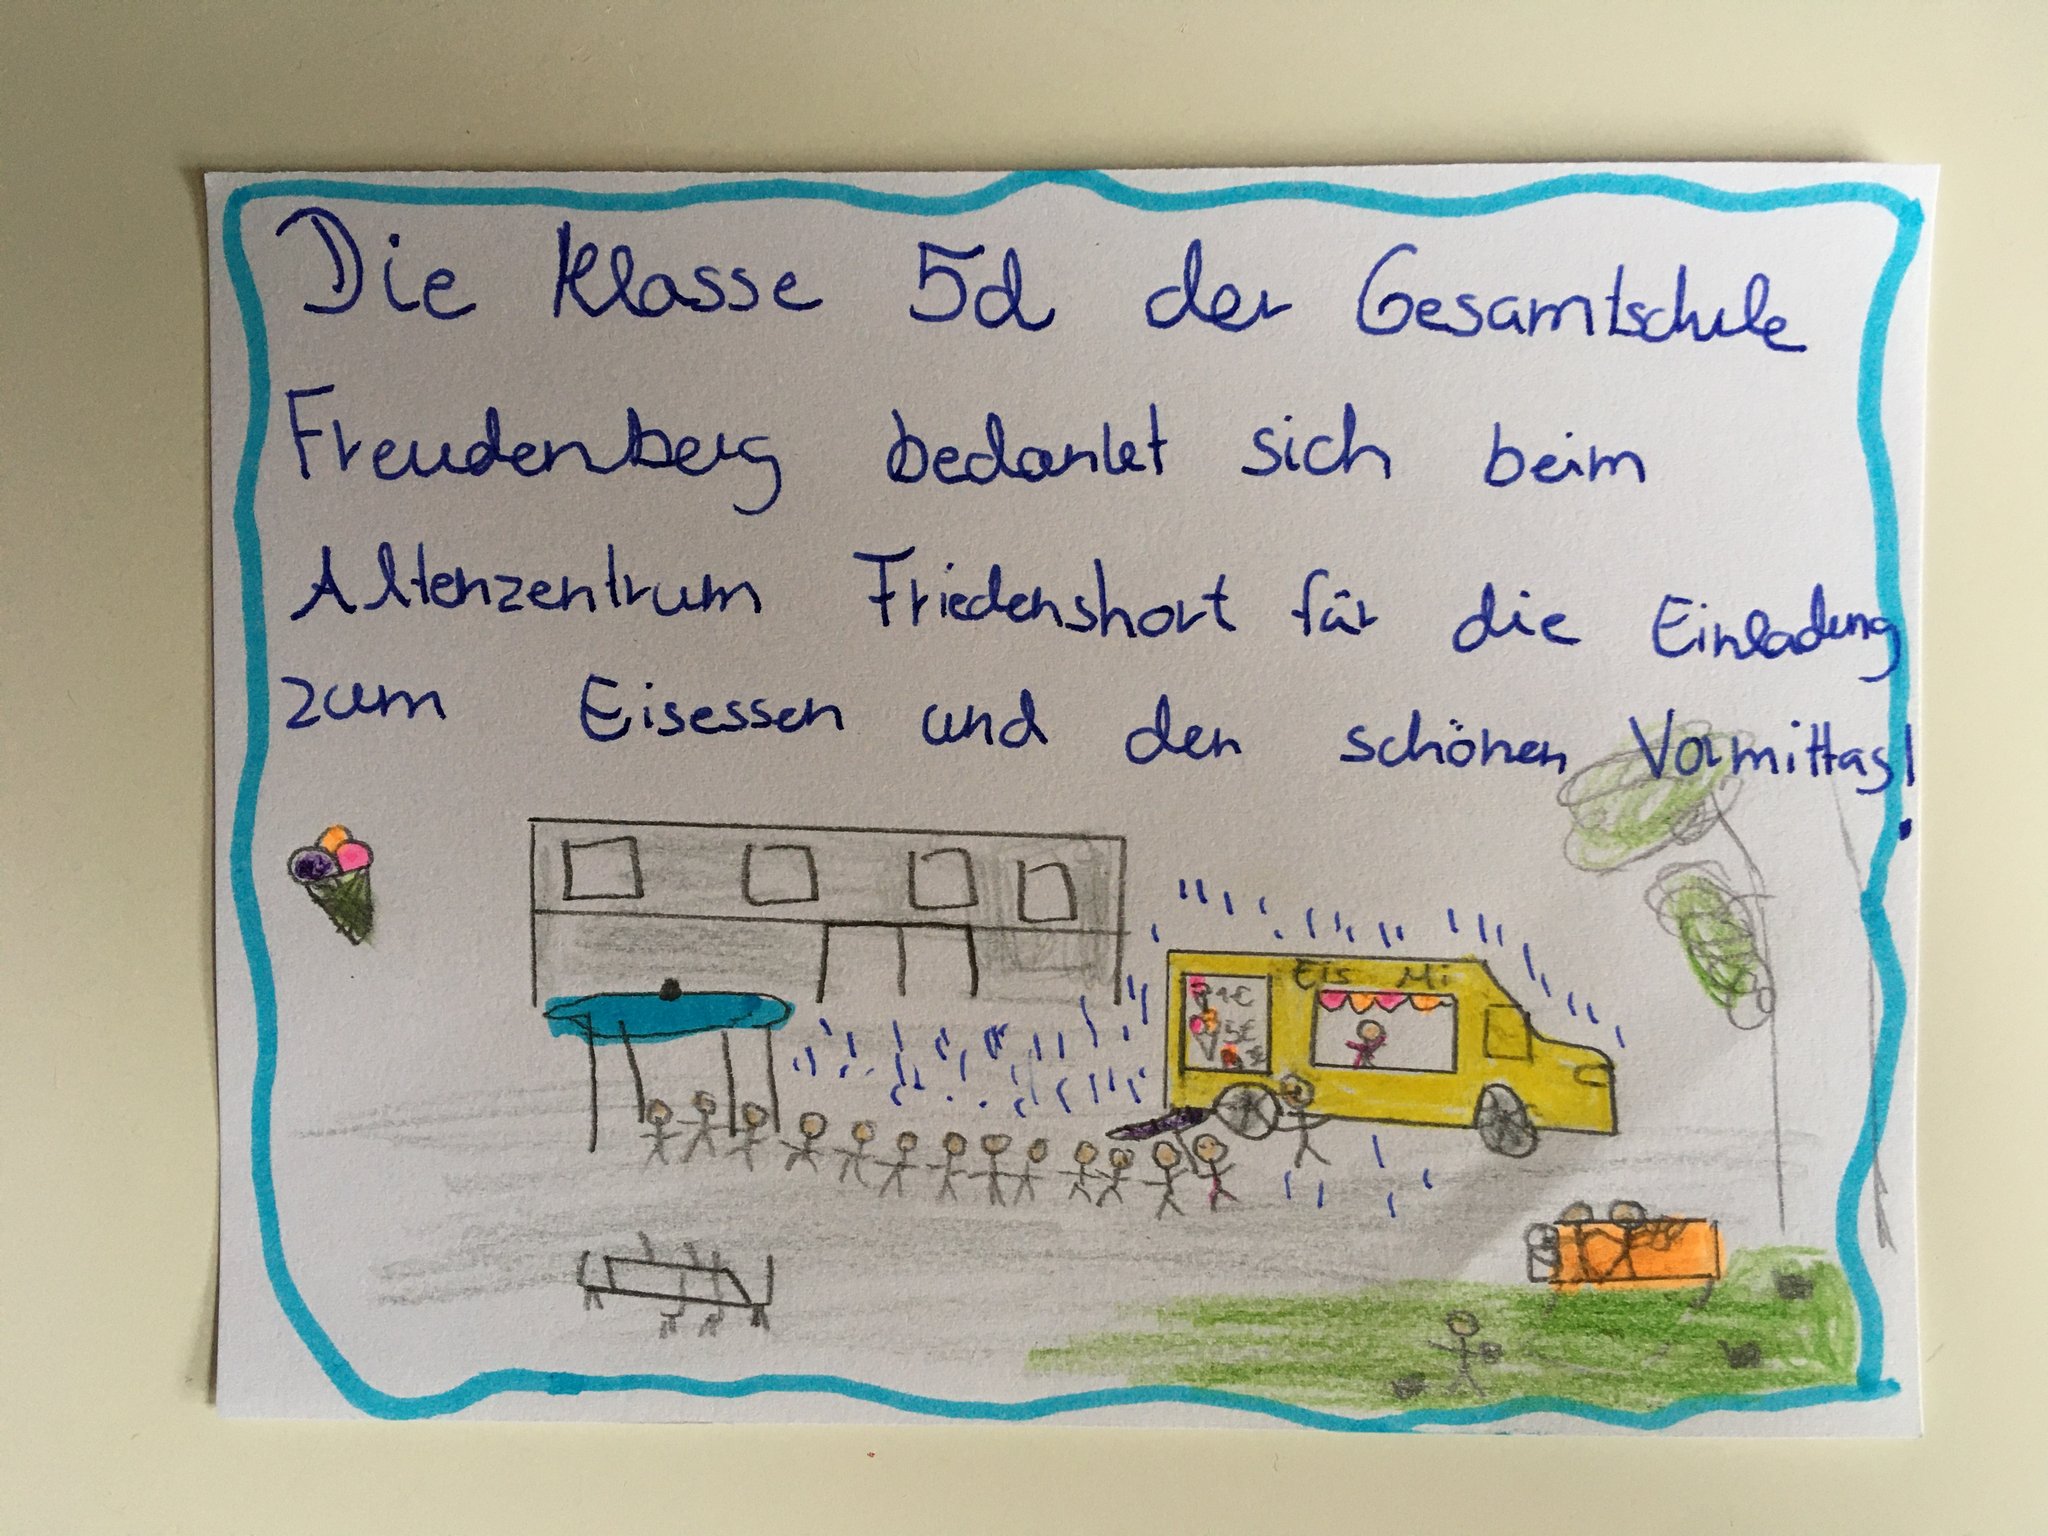 Die Klasse 5d der Gesamtschule
Freudenberg bedanket sich beim
Altenzentrum Friedenshort für die Einladung
zum Eisessen und den schönen Vormittag!
Eis Mi